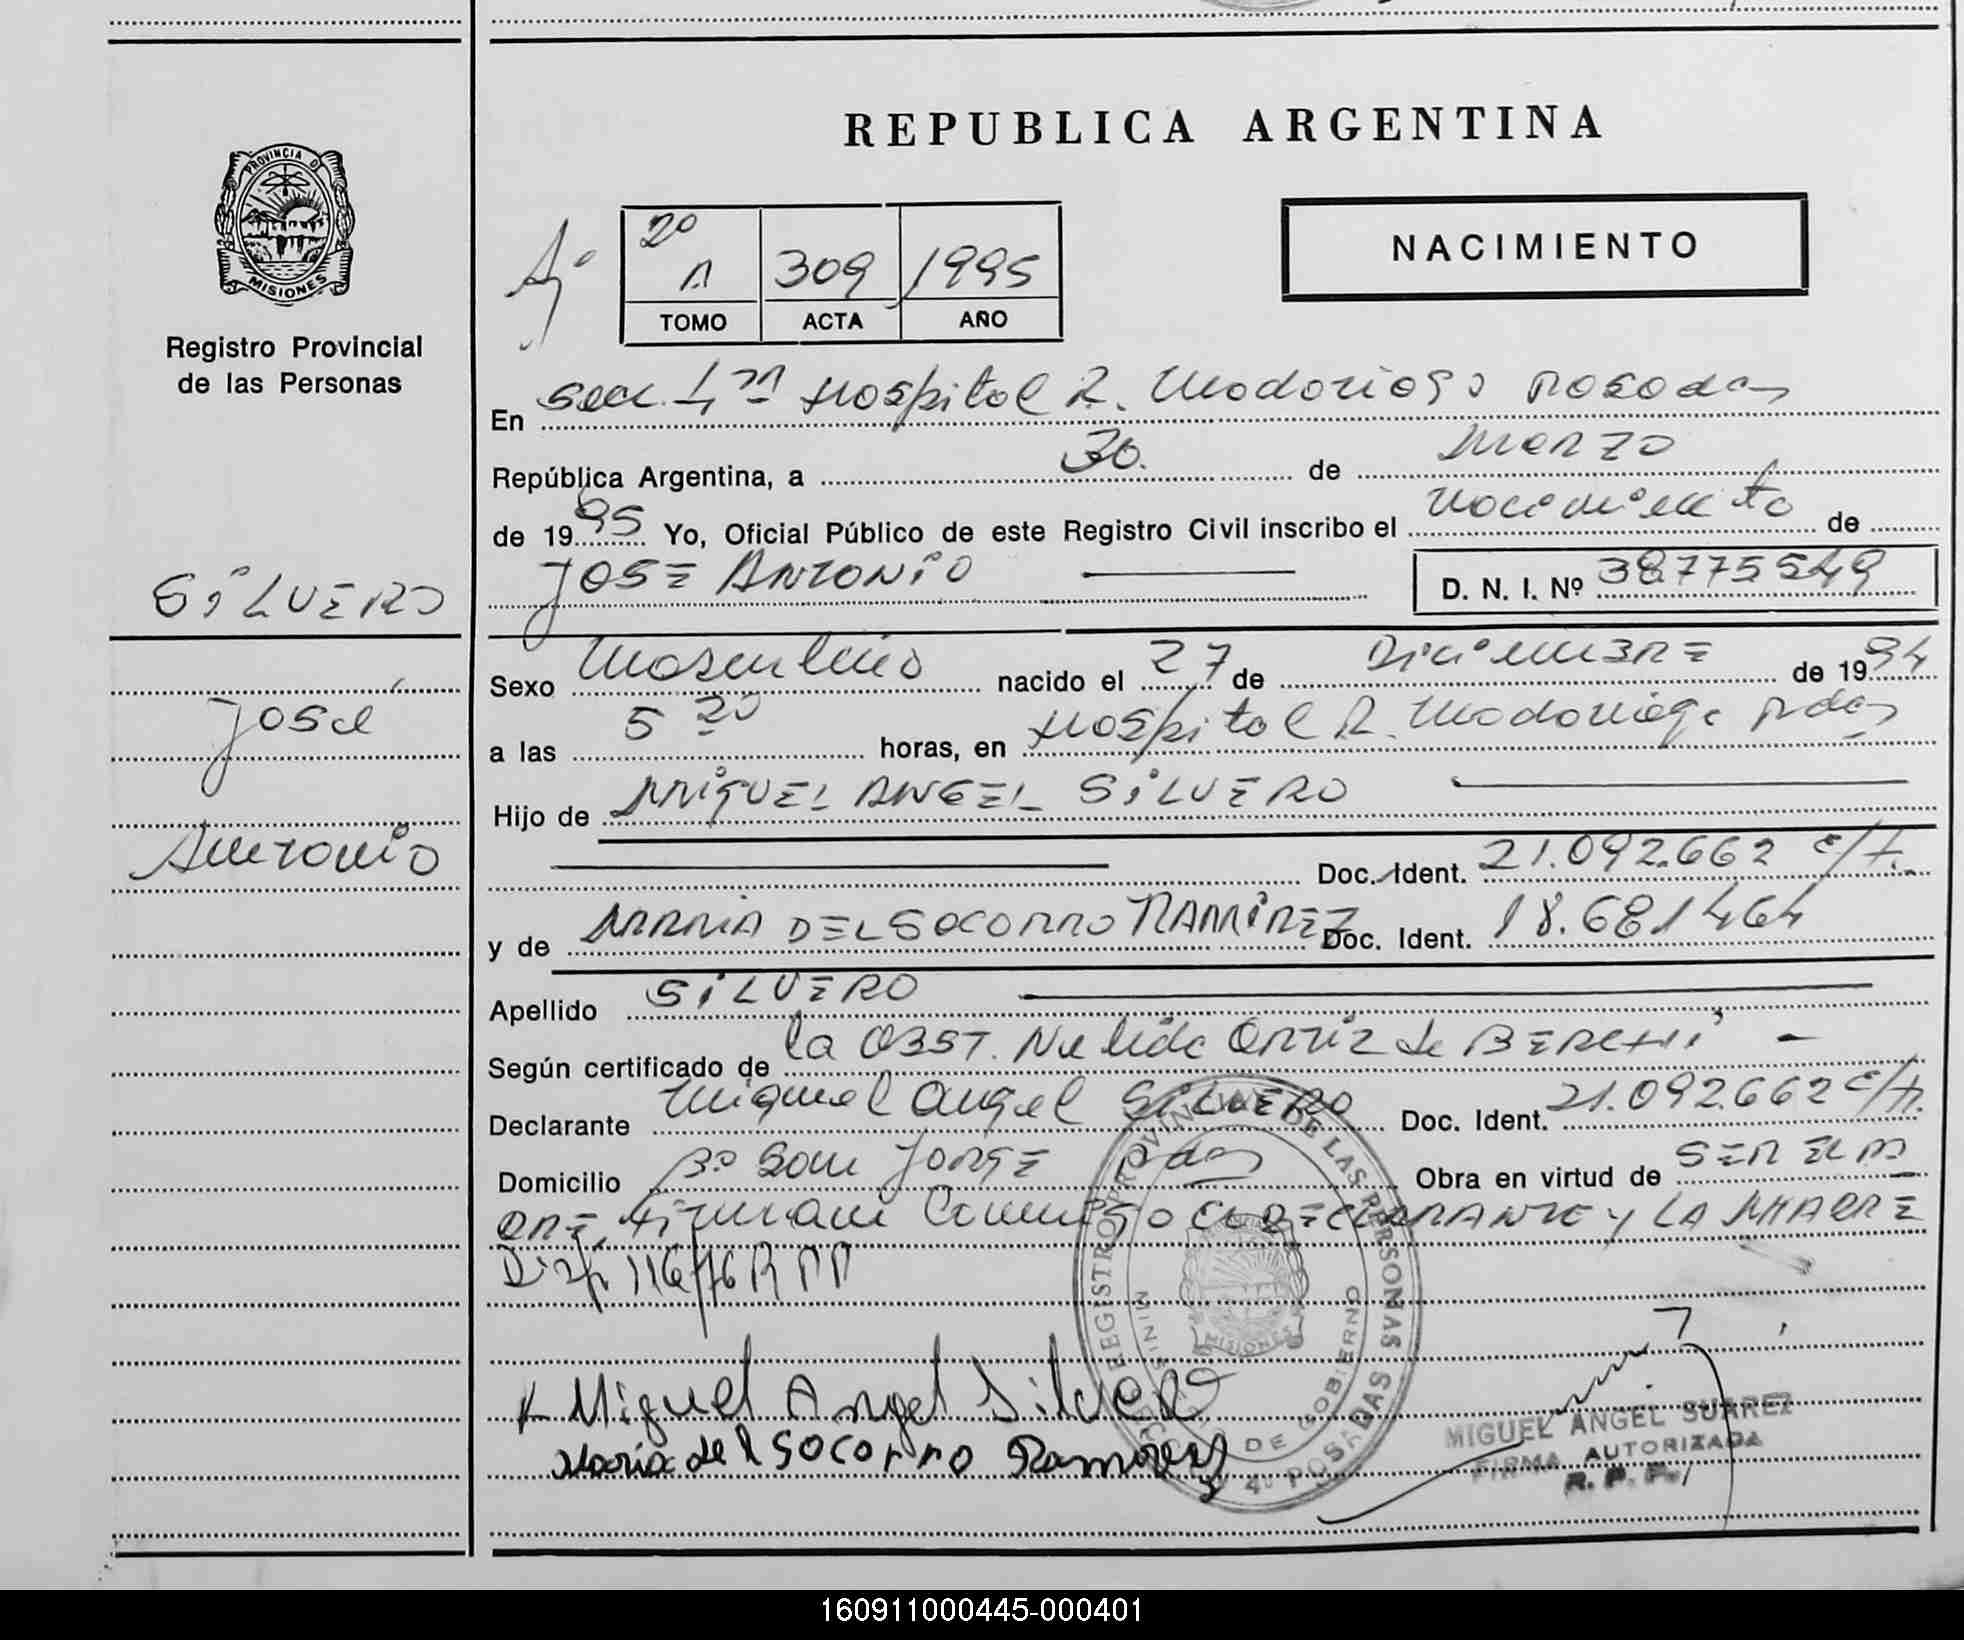 REPUBLICA ARGENTINA
PROVINCIA D
MISIONES
Registro Provincial
de las Personas
2º
A 309 1995
TOMO ACTA AÑO
NACIMIENTO
En Secc. 4ta Hospital R. Madariaga Posadas
República Argentina, a 30. de Marzo
de 1995 Yo, Oficial Público de este Registro Civil inscribo el nacimiento de
JOSE ANTONIO
D. N. I. Nº 38.775549
SILVERO
José
Antonio
Sexo Masculino nacido el 27 de Diciembre de 1994
a las 5 20 horas, en Hospital R. Madariaga Pdas
Hijo de MIGUEL ANGEL SILVERO
Doc. Ident. 21.092.662 c/f.
y de MARIA DEL SOCORRO RAMIREZ Doc. Ident. 18.681464
Apellido SILVERO
Según certificado de la OBST. Nelida ORTIZ de BERCHI
Declarante Miguel Angel SILVERO Doc. Ident. 21.092.662 c/f.
Domicilio Bº San JORGE Pdas Obra en virtud de SER EL PA
DRE, firman conmigo el DECLARANTE y LA MADRE
Disp. 116/76 R P P
Miguel Angel Silvero
Maria del Socorro Ramirez
REGISTRO PROVINCIAL DE LAS PERSONAS
MINISTERIO DE GOBIERNO
MISIONES
4º POSADAS
MIGUEL ANGEL SUAREZ
FIRMA AUTORIZADA
R. P. P.
160911000445-000401